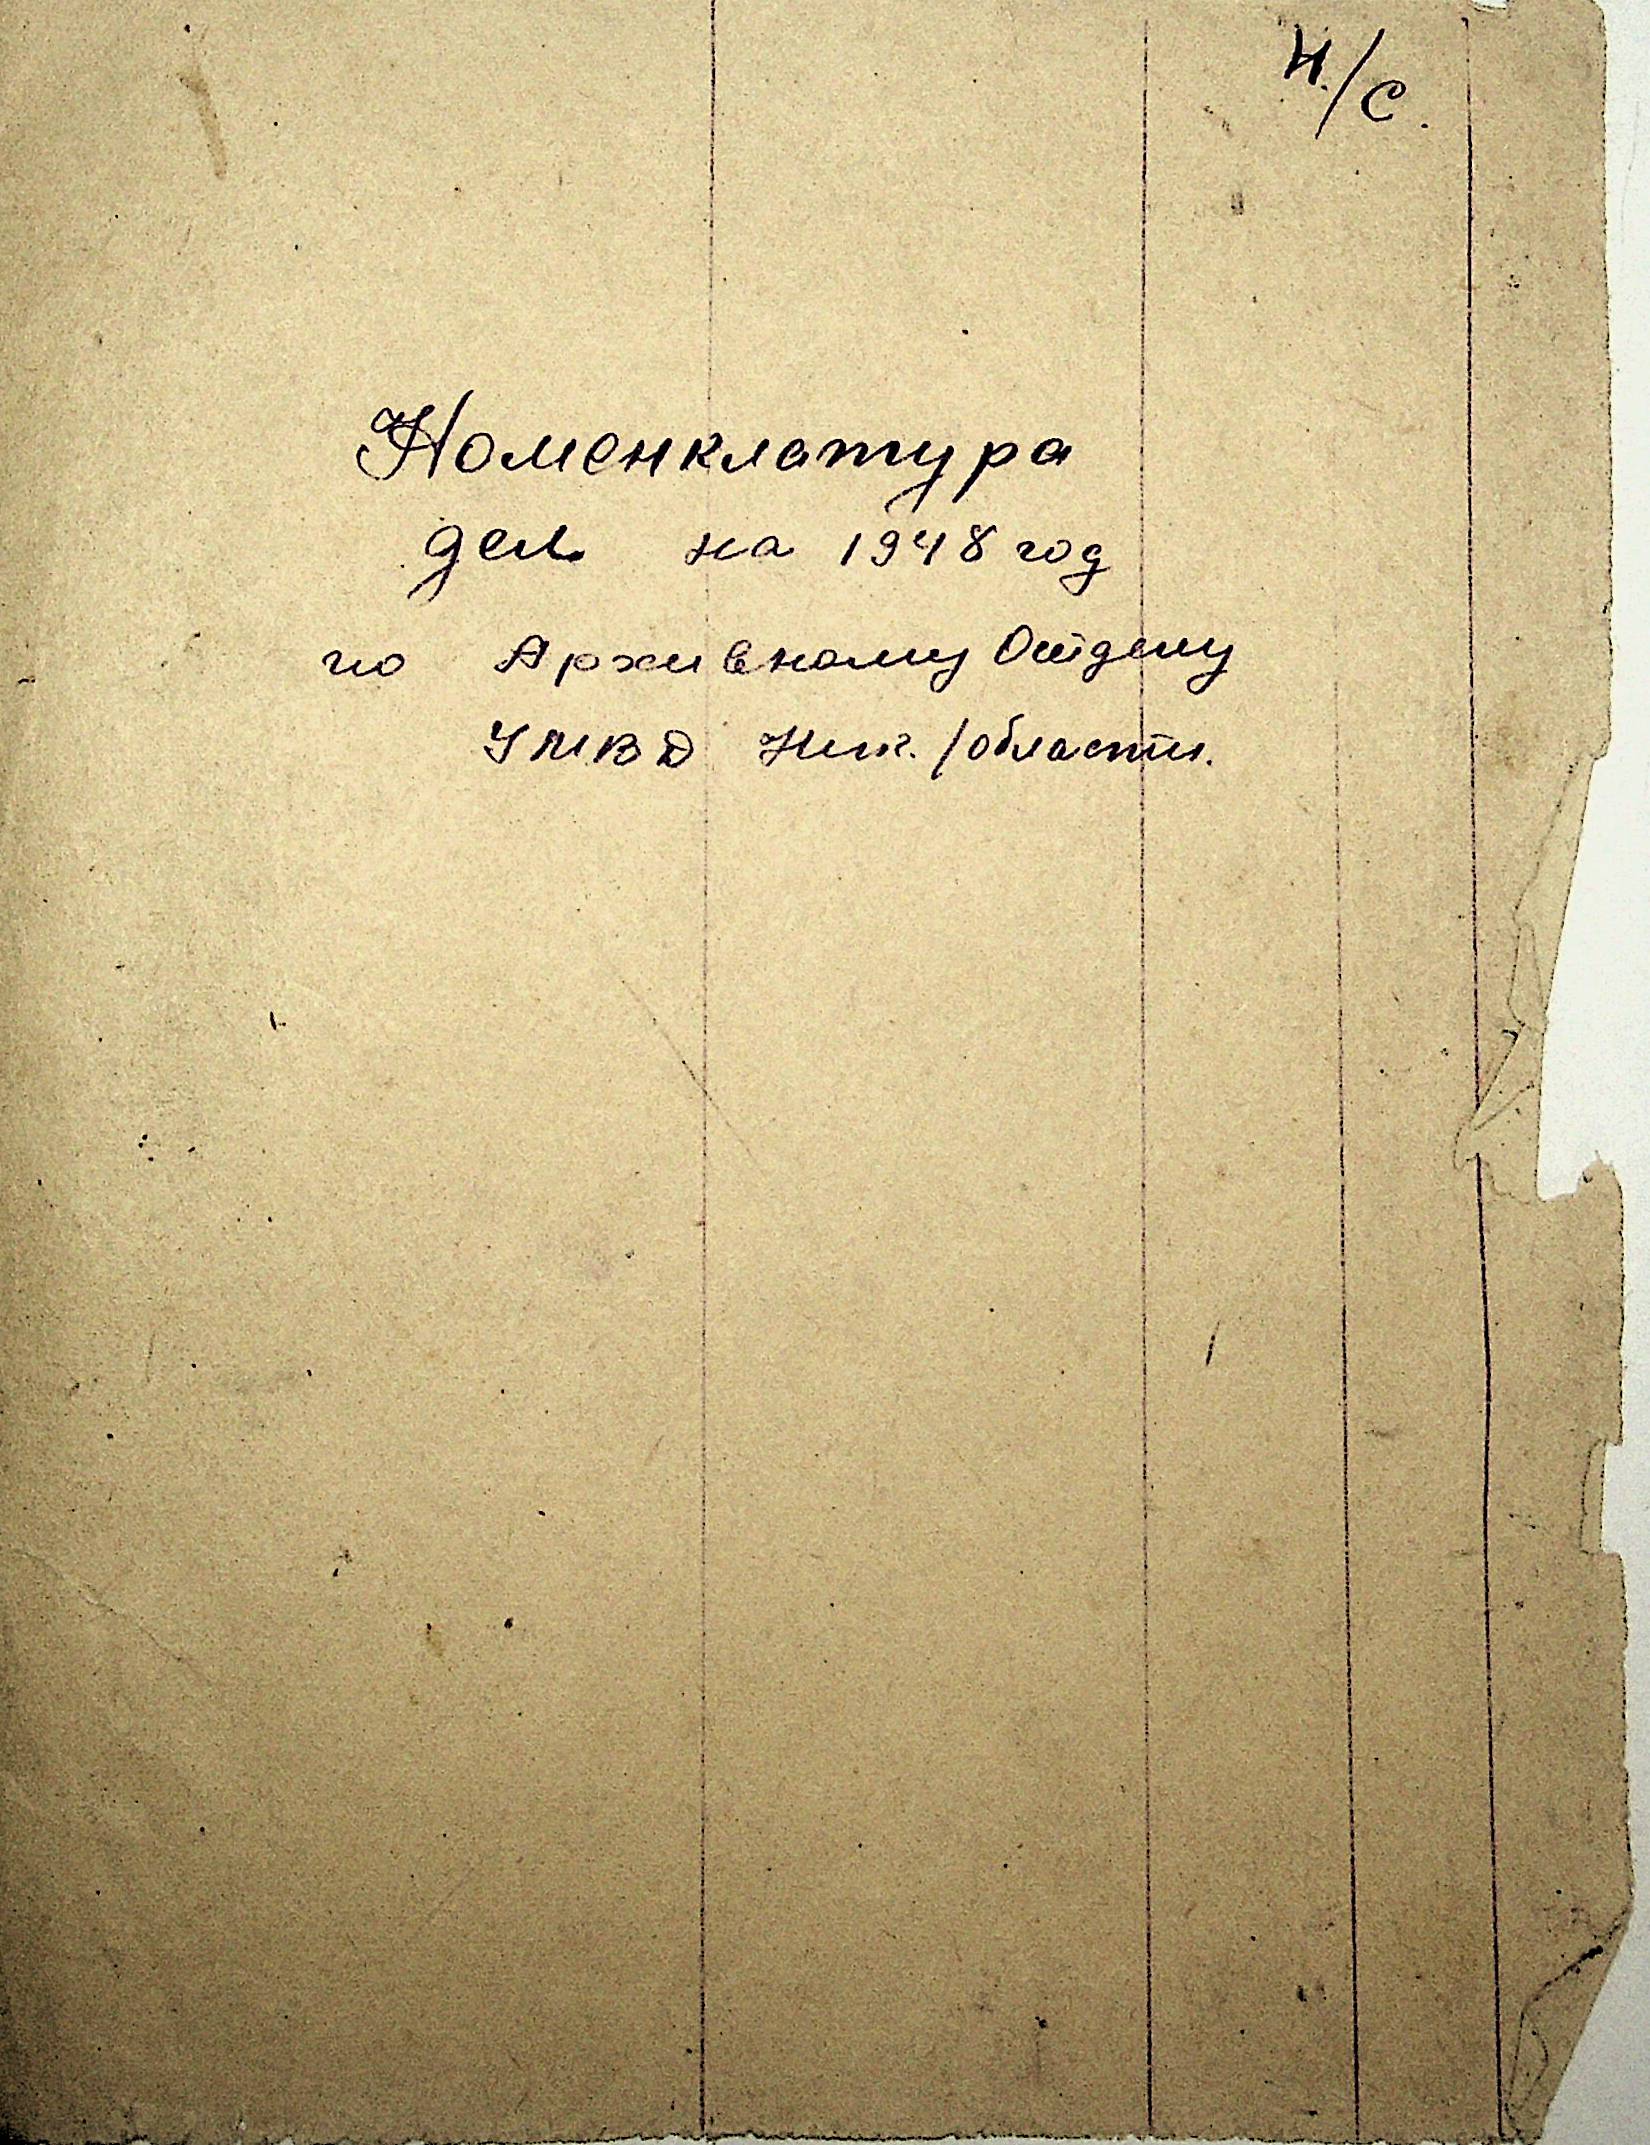 Н./С.
Номенклатура
дел на 1948 год
по Архивному Отделу
УМВД Ник. /области.